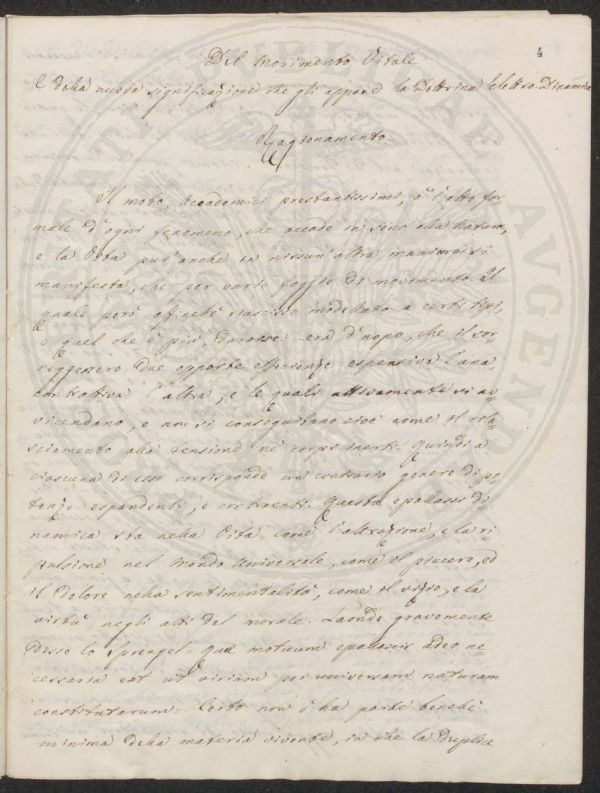 4
Del Movimento Vitale
E della nuova significazione che gli appone la Dottrina Elettro-Dinamica
Ragionamento
Il moto, Accademici prestantissimi, è l'atto for-
male d'ogni fenomeno, che accade in seno alla natura,
e la Vita pur anche in nissun'altra maniera si
manifesta, che per varie fogge di movimento. Il
quale però affinchè riuscisse modellato a certi tipi,
o quel che è più, durasse era d'uopo, che il cor-
reggessero due opposte efferenze espansiva l'una,
controttiva l'altra, e le quali attivamente si av-
vicendano, e non si conseguitano cioè come il rila-
sciamento alla tensione ne' corpi inerti. Quindi a
ciascuna di esse corrisponde un contrario genere di po-
tenze espandenti, e contraenti. Questa epallassi di-
namica sta nella Vita come l'attrazione, e la ri-
pulsione nel Mondo Universale, come il piacere, ed
il Dolore nella sentimentalità, come il vizio, e la
virtù negli atti del morale. Laonde gravemente
disse lo Sprengel = quae motuum epallaxis adeo ne-
cessaria est ut virium per universam naturam
constitutarum = Certo non v'ha parte benchè
minima della materia vivente, in che la Duplice